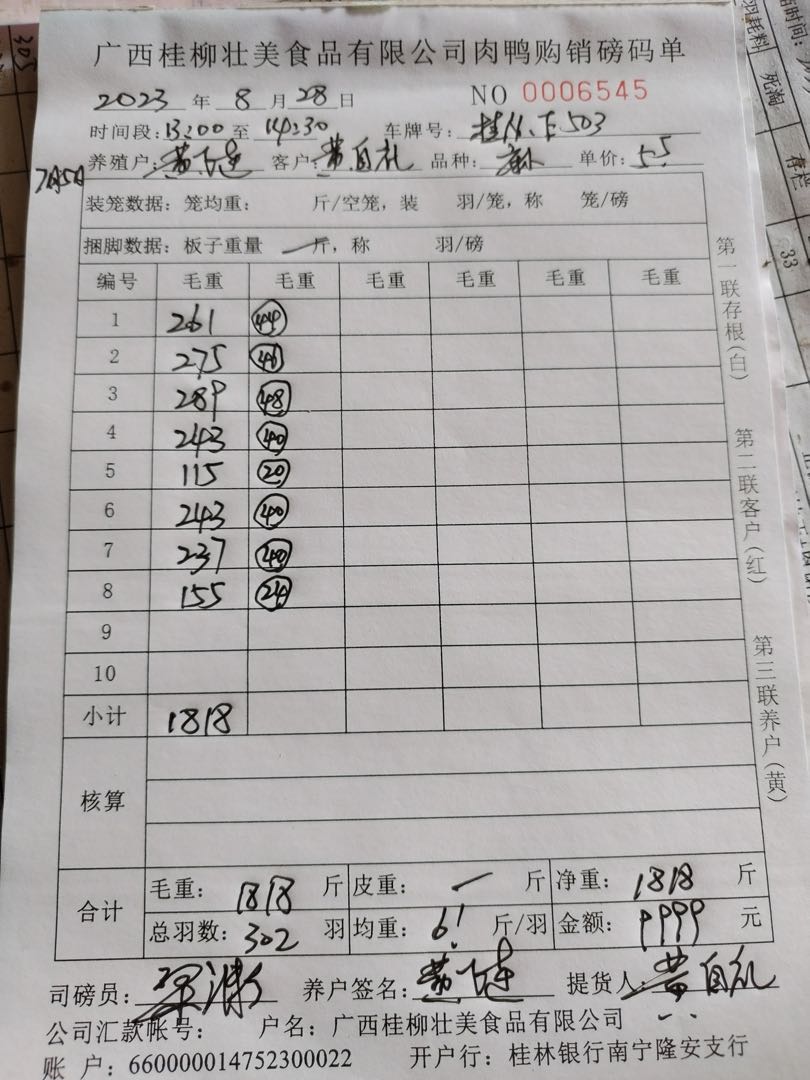 广西桂柳壮美食品有限公司肉鸭购销磅码单
2023 年 8 月 28 日 NO 0006545
时间段: 13:00 至 14:30 车牌号:
养殖户: 客户: 黄自礼 品种: 麻 单价: 5.5
装笼数据: 笼均重: 斤/空笼, 装 羽/笼, 称 笼/磅
捆脚数据: 板子重量 一 斤, 称 羽/磅
编号 毛重 毛重 毛重 毛重 毛重 毛重
1 261 44
2 275 46
3 289 48
4 243 40
5 115 20
6 243 40
7 237 40
8 155 24
9
10
小计 1818
核算
合计
毛重: 1818 斤 皮重: 一 斤 净重: 1818 斤
总羽数: 302 羽 均重: 6! 斤/羽 金额: 9999 元
司磅员: 养户签名: 提货人: 黄自礼
公司汇款帐号: 户名: 广西桂柳壮美食品有限公司
账 户: 660000014752300022 开户行: 桂林银行南宁隆安支行
第一联存根(白)
第二联客户(红)
第三联养户(黄)
305
死淘
存栏
33